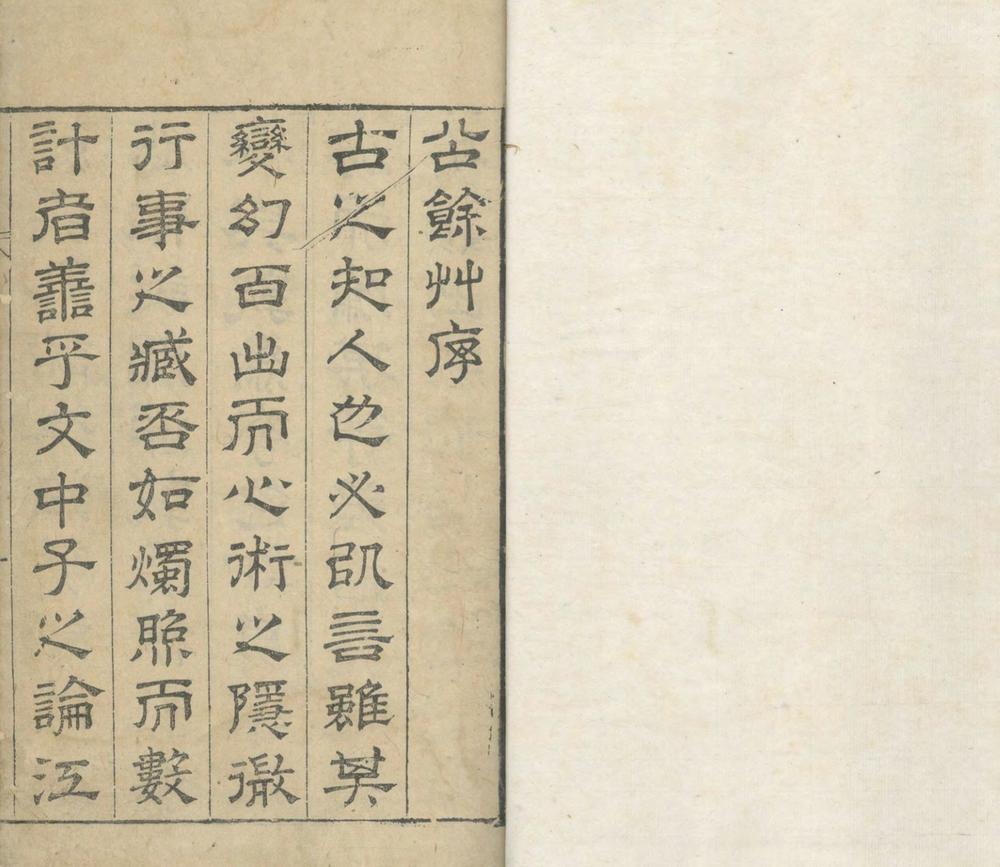 公餘艸序
古之知人也必以言雖其
變幻百出而心術之隱微
行事之臧否如燭照而數
計者譱乎文中子之論江